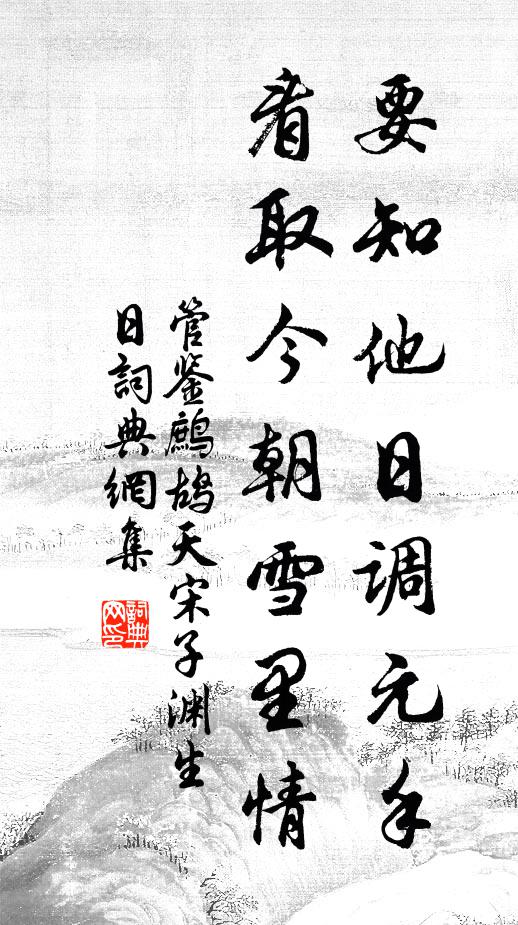 要知他日调元手
看取今朝雪里情
管鉴鹧鸪天宋子渊生
日詞典網集
詞典
网印